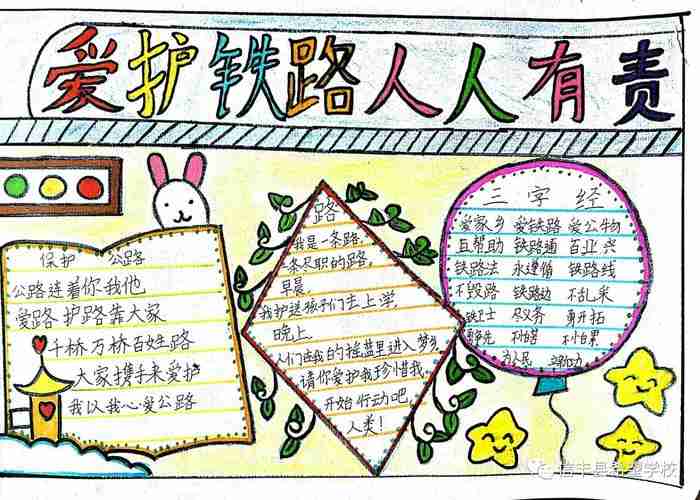 爱护铁路人人有责
保护 公路
公路连着你我他
爱路护路靠大家
千桥万桥百姓路
大家携手来爱护
我以我心爱公路
路
我是一条路,
一条尽职的路,
早晨
我护送孩子们去上学
晚上
人们在我的摇篮里进入梦乡
请你爱护我珍惜我,
开始行动吧,
人类!
三字经
爱家乡 爱铁路 爱公物
互帮助 铁路通 百业兴
铁路法 永遵循 铁路线
不毁路 铁路边 不乱采
铁卫士 尽义务 勇开拓
为人民
信丰县希望学校